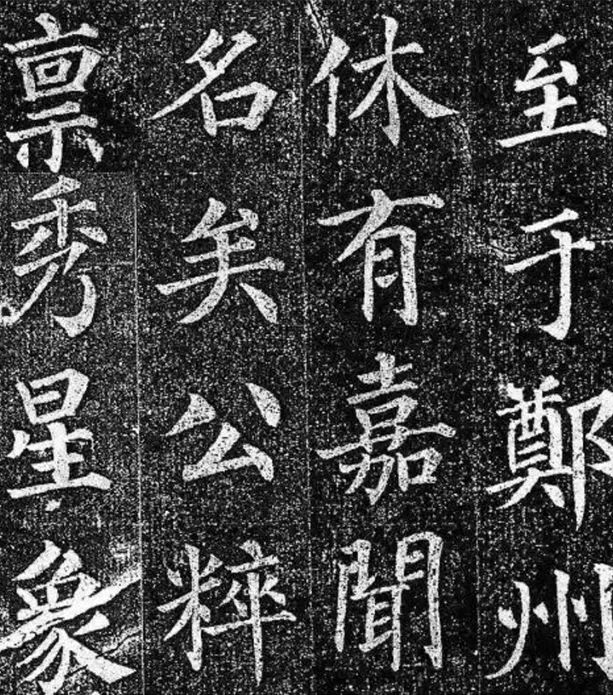 至于鄭州
休有嘉聞
名矣公粹
禀秀星象